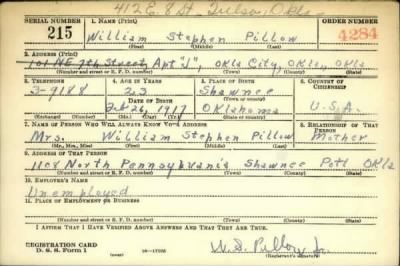 412 E. 8 St. Tulsa, Okla
SERIAL NUMBER 1. NAME (Print) ORDER NUMBER
215 William Stephen Pillow 4284
(First) (Middle) (Last)
2. ADDRESS (Print)
101 N.E. 7th Street, Apt "J", Okla City, Okla, Okla
(Number and street or R. F. D. number) (Town) (County) (State)
3. TELEPHONE 4. AGE IN YEARS 5. PLACE OF BIRTH 6. COUNTRY OF CITIZENSHIP
3-9188 23 Shawnee
DATE OF BIRTH (Town or county)
Feb 26, 1917 Oklahoma U.S.A.
(Exchange) (Number) (Mo.) (Day) (Yr.) (State or country)
7. NAME OF PERSON WHO WILL ALWAYS KNOW YOUR ADDRESS 8. RELATIONSHIP OF THAT PERSON
Mrs. William Stephen Pillow Mother
(Mr., Mrs., Miss) (First) (Middle) (Last)
9. ADDRESS OF THAT PERSON
1108 North Pennsylvania Shawnee Pott Okla
(Number and street or R. F. D. number) (Town) (County) (State)
10. EMPLOYER'S NAME
Unemployed
11. PLACE OF EMPLOYMENT OR BUSINESS
(Number and street or R. F. D. number) (Town) (County) (State)
I AFFIRM THAT I HAVE VERIFIED ABOVE ANSWERS AND THAT THEY ARE TRUE.
REGISTRATION CARD
D. S. S. Form 1 16-17105 W. S. Pillow Jr.
(Registrant's signature)